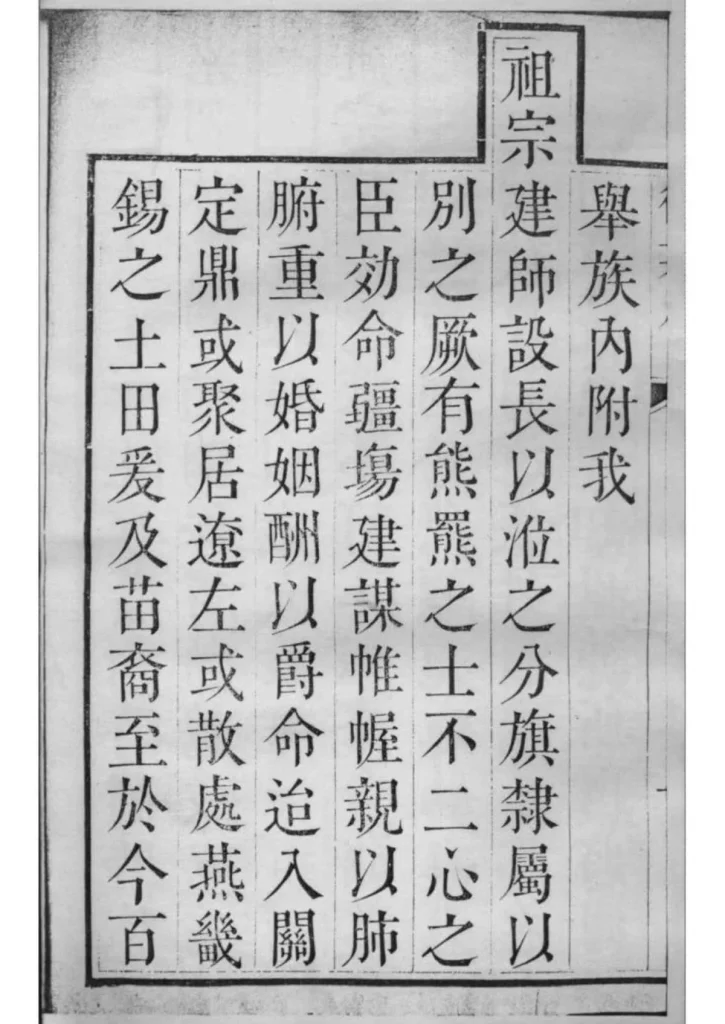 舉族內附我
祖宗建師設長以涖之分旗隸屬以
別之厥有熊羆之士不二心之
臣効命疆場建謀帷幄親以肺
腑重以婚姻酬以爵命迨入關
定鼎或聚居遼左或散處燕畿
錫之土田爰及苗裔至於今百